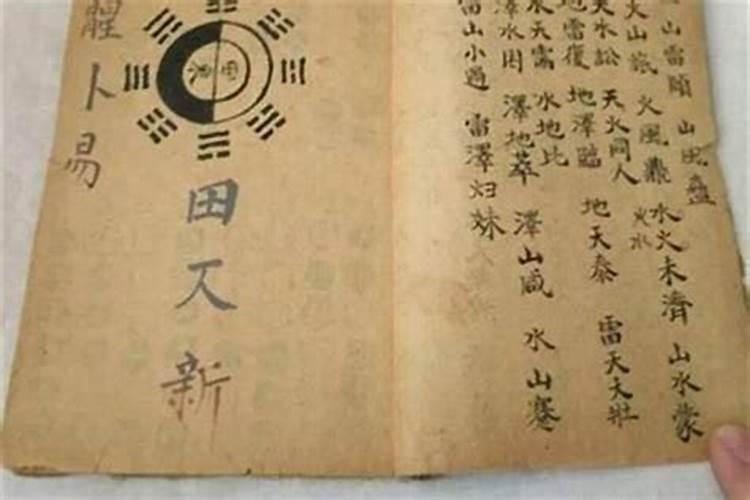 山雷頤
山風蠱
水火未濟
火水
山水蒙
火山旅
火風鼎
天水訟
天火同人
地雷復
地澤臨
地天泰
雷天大壯
水天需
水地比
澤水困
澤地萃
澤山咸
水山蹇
雷山小過
雷澤归妹
田又新
卜易